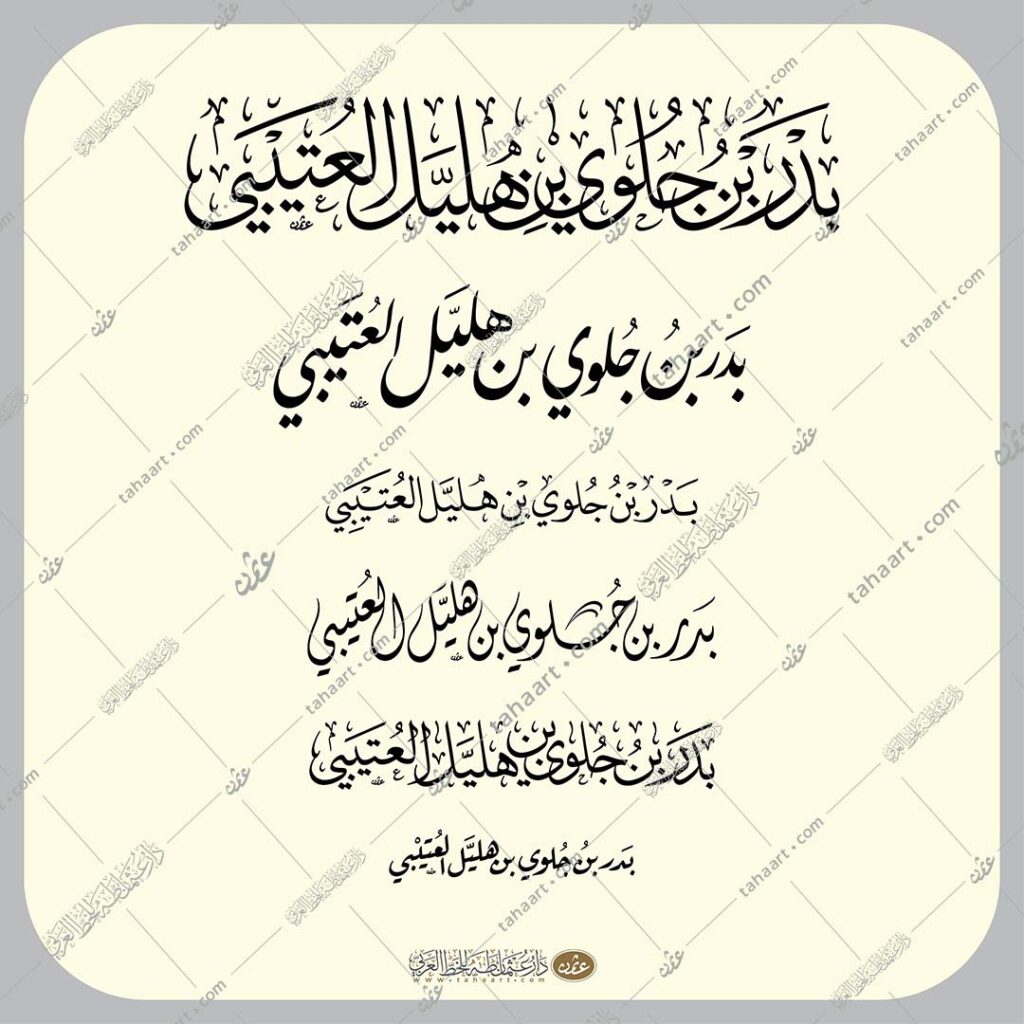 بَدْرُ بْنُ جُلَوِي بْنِ هُلَيَّل العُتَيْبِي
بَدر بنُ جُلوي بن هليَّل العُتيبي
بَدْرُ بْنُ جُلوي بْنِ هُليَّل العُتَيْبِي
بَدر بن جُلوي بن هليَّل العُتيبي
بَدَر بنُ جُلوي بن هليَّل العُتيبي
بَدر بنُ جلوي بن هليَّل العُتيْبي
دار عثمان طه للخط العربي
www.tahaart.com